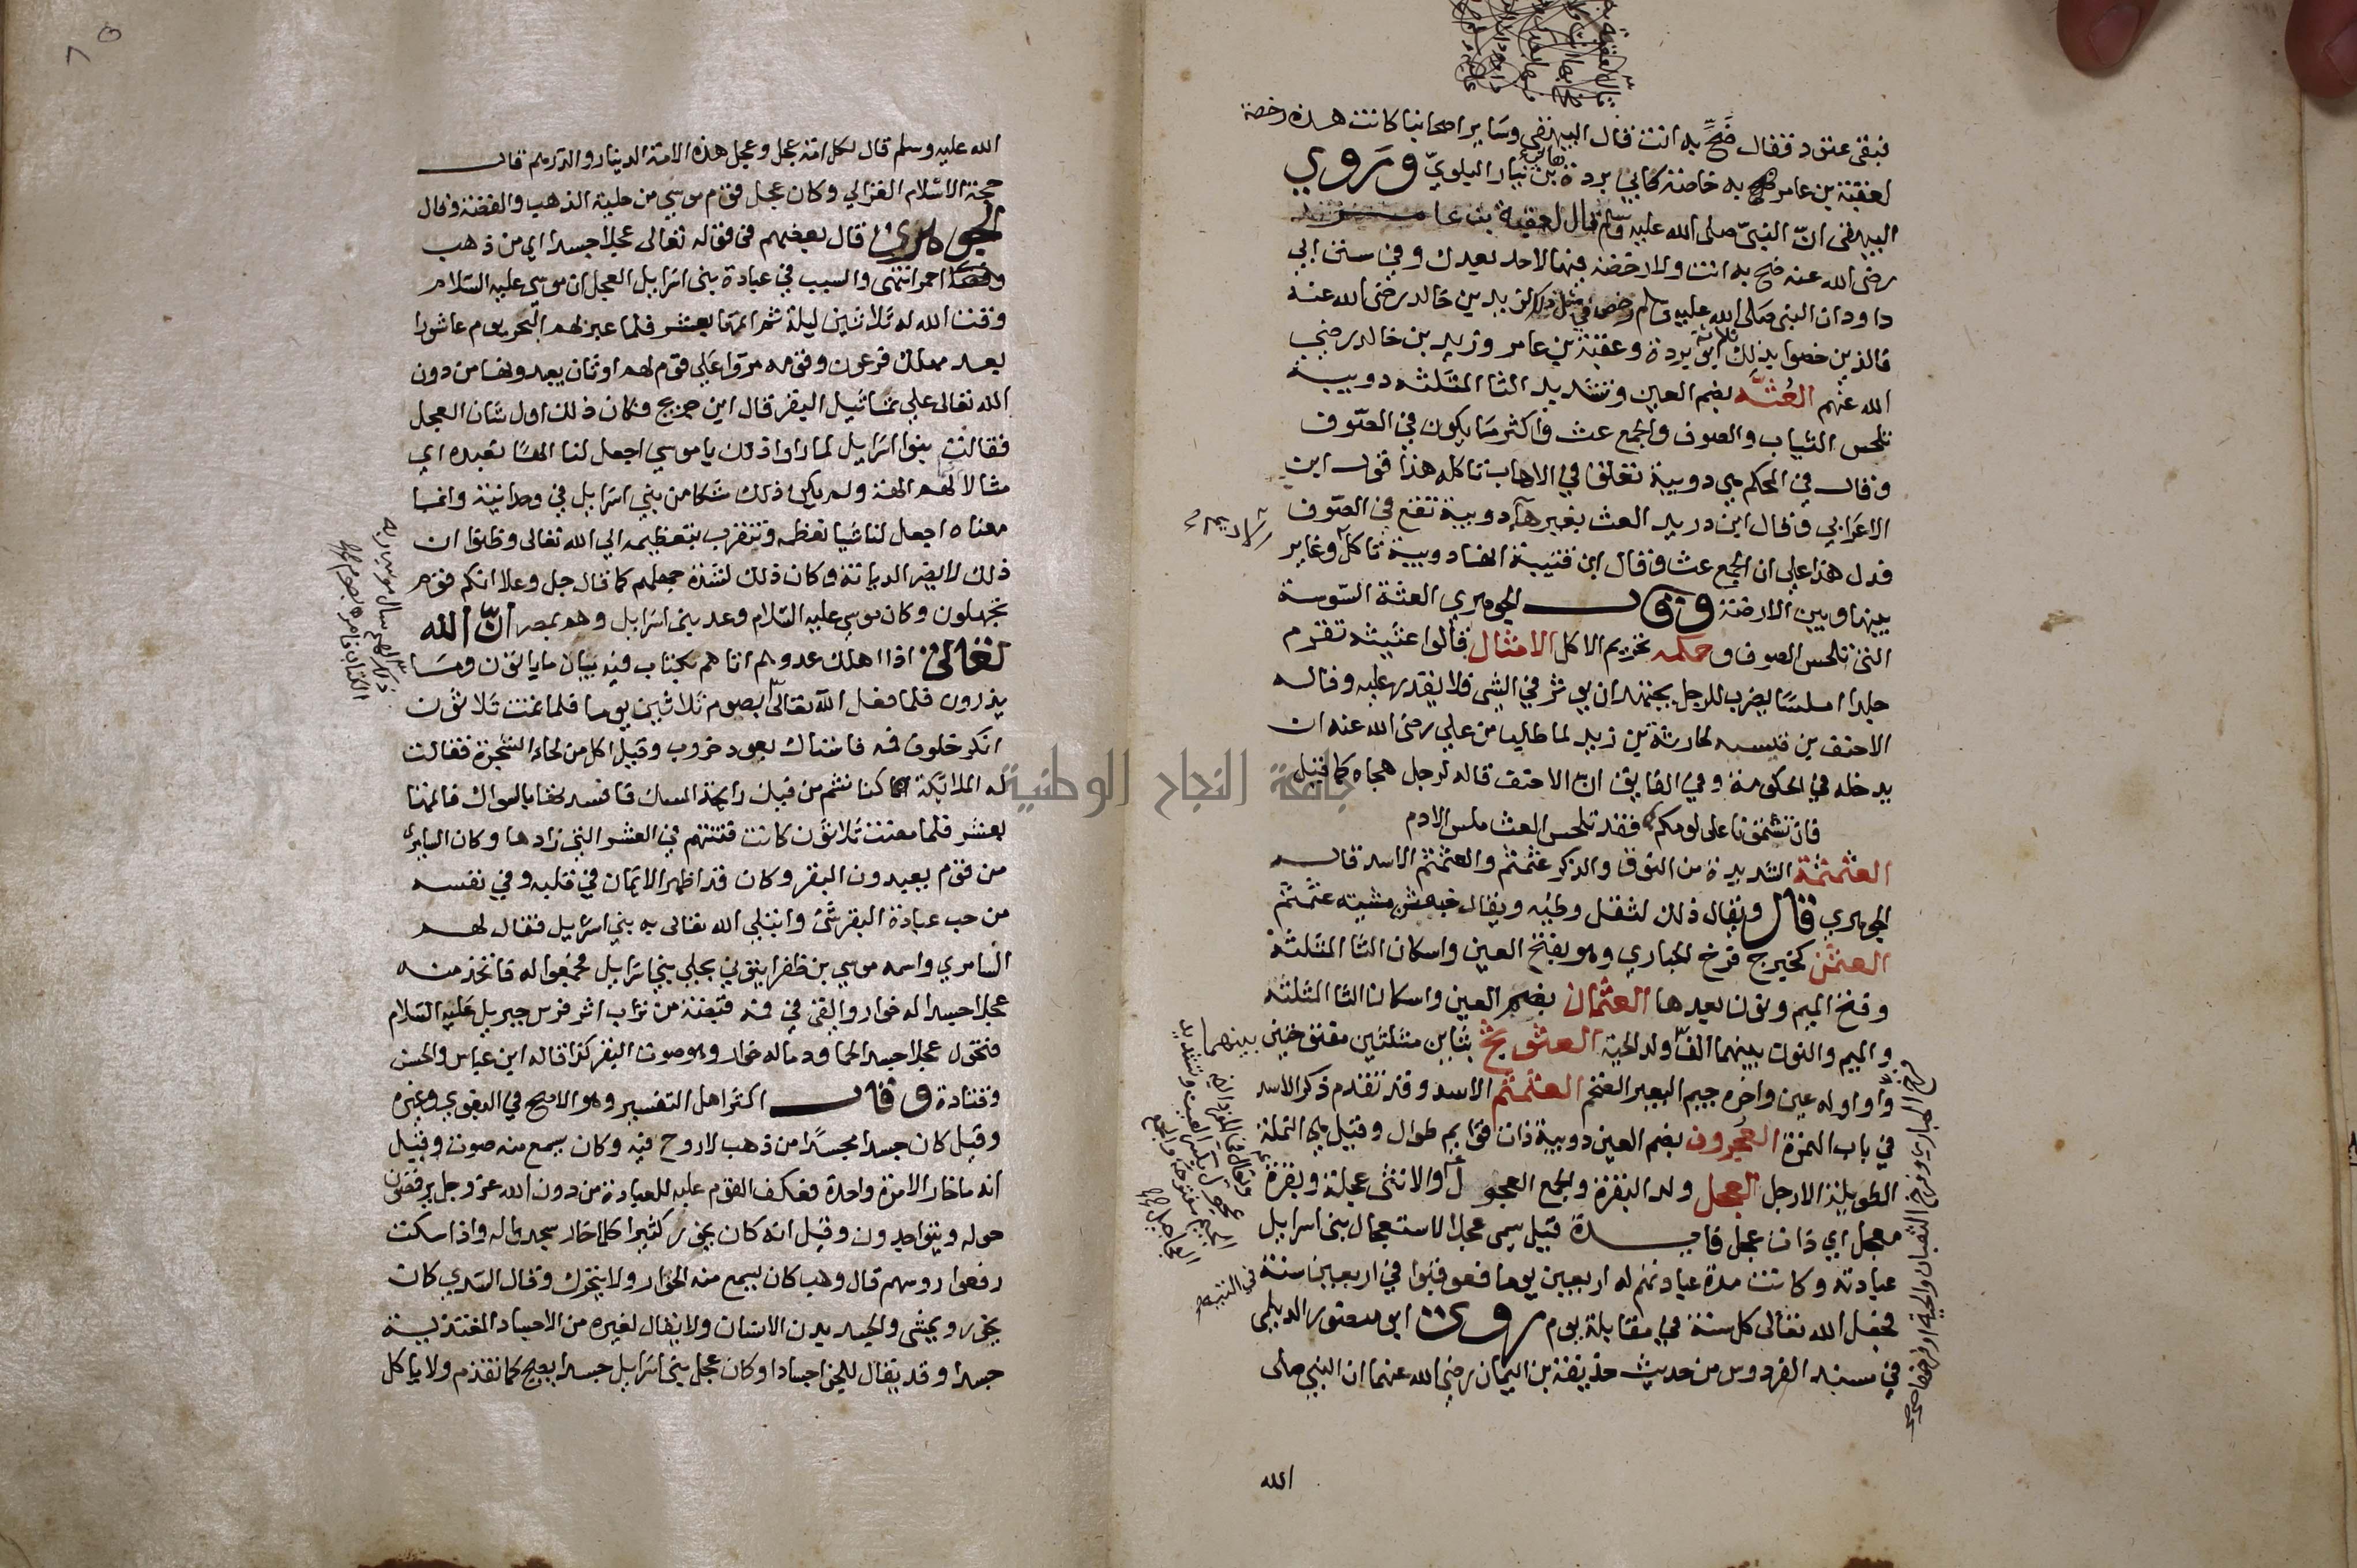 فبقى عنود فقال ضَحِّ به انت قال البيهقي وساير اصحابنا كانت هذه رخصة
لعقبة بن عامر به خاصة كابي بردة هاني بن نيار البلويّ وروي
البيهقى انّ النبيّ صلى الله عليه وسلم قال لعقبة بن عامر
رضى الله عنه ضح به انت ولا رخصة فيها لاحد بعدك وفي سنن ابي
داود ان النبى صلى الله عليه وسلم رخص في مثل ذلك لزيد بن خالد رضى الله عنه
فالذين خصوا بذلك ثلاثة ابو بردة وعقبة بن عامر وزيد بن خالد رضي
الله عنهم العُثَّه بضم العين وتشديد الثا المثلثه دويبية
تلحس الثياب والصوف والجمع عث واكثر ما يكون في الصّوف
وقال في المحكم هي دويبة تعلق في الاهاب تاكله هذا قول ابن
الاعرابي وقال ابن دريد العث بغير هآء دويبة تقع في الصّوف
فدل هذا على ان الجمع عث وقال ابن قتيبة انها دويبة تاكل وغاير
بينها وبين الارضة وقال الجوهري العثة السّوسة
التي تلحس الصوف وحكمه تحريم الاكل الامثال قالوا عثيثه تقرم
جلدا املسًا يضرب للرجل يجتهد ان يوثر في الشى فلا يقدر عليه وقاله
الاحنف بن قيس لحارثة بن زيد لما طلب من علي رضى الله عنه ان
يدخله في الحكومة وفي الفايق انّ الاحنف قاله لرجل هجاه كما قيل
فان تشتمونا على لومكم فقد تلحس العث ملس الادم
العثمثمة الشديدة من النوق والذكر عثمثم والعثمثم الاسد قاله
الجوهري قال ويقال ذلك لثقل وطيه ويقال خبعثن مشيته عثمثم
العثمن كخيرج فرخ الحباري وهو بفتح العين واسكان الثا المثلثة
وفتح الميم ونون بعدها العثمان بضم العين واسكان الثا المثلثة
والميم والنون بينهما الف ولد الحية العثوثج بثاين مثلثين مفتوحين بينهما
واو اوله عين واخره جيم البعير الضخم العثمثم الاسد وقد تقدم ذكر الاسد
في باب الهمزة العجروف بضم العين دويبة ذات قوايم طوال وقيل هي النملة
الطويلة الارجل العجل ولد البقرة والجمع العجول والانثى عجلة وبقرة
معجل اي ذات عجل فايدة قيل سمى عجلا لاستعجال بنى اسرايل
عبادته وكانت مدة عبادتهم له اربعين يوما فعوقبوا في اربعين سنة في التيه
فجعل الله تعالى كل سنة في مقابلة يوم روى ابو منصور الديلمى
في مسند الفردوس من حديث حذيفة بن اليمان رضي الله عنهما ان النبي صلى
الله
الله عليه وسلم قال لكل امة عجل وعجل هذه الامة الدينار والدرهم قال
حجة الاسلام الغزالي وكان عجل قوم موسي من حلية الذهب والفضة وقال
الجوهري قال بعضهم في قوله تعالى عجلا جسدا اي من ذهب
احمر انتهى والسبب في عبادة بنى اسرايل العجل ان موسى عليه السلام
وقت الله له ثلاثين ليلة ثم اتمها بعشر فلما عبر لهم البحر يوم عاشورا
بعد مهلك فرعون وقومه مروا على قوم لهم اوثان يعبدونها من دون
الله تعالى علي تماثيل البقر قال ابن جريج وكان ذلك اول شان العجل
فقالت بنوا اسرايل لما راوا ذلك يا موسي اجعل لنا الها نعبده اي
مثالا لهم الهة ولم يكن ذلك شكا من بني اسرايل في وحدانية وانما
معناه اجعل لنا شيا نعظمه ونتقرب بتعظيمه الي الله تعالى وظنوا ان
ذلك لا يضر الديانة وكان ذلك لشدة جهلهم كما قال جل وعلا انكم قوم
تجهلون وكان موسي عليه السلام وعد بنى اسرايل وهم بمصر انّ الله
تعالى اذا اهلك عدوهم اتاهم بكتاب فيه بيان ما ياتون وما
يذرون فلما فعل الله تعالى بصوم ثلاثين يوما فلما تمت ثلاثون
انكر خلوف فمه فاستاك بعود خروب وقيل اكل من لحاء الشجرة فقالت
له الملائكة كنا نشم من فيك رايحة المسك فافسدتها بالسواك فاتمها
بعشر فلما مضت ثلاثون كانت فتنتهم في العشر التي زادها وكان السامري
من قوم يعبدون البقر وكان قد اظهر الايمان في قلبه وفي نفسه
من حب عبادة البقر شئ وابتلي الله تعالى به بني اسرايل فقال لهم
السامري واسمه موسي بن ظفر ايتوني بحلي بني اسرايل فجمعوا له فاتخذ منه
عجلا جسدا له خوار والقى في فمه قبضة من تراب اثر فرس جبريل عليه السلام
فتحول عجلا جسدا لحما ودما له خوار وهو صوت البقر كذا قاله ابن عباس والحسن
وقتادة وقال اكثر اهل التفسير وهو الاصح في البغوي وغيره
وقيل كان جسدا مجسدًا من ذهب لا روح فيه وكان يسمع منه صوت وقيل
انه ما خار الا مرة واحدة فعكف القوم عليه للعبادة من دون الله عز وجل يرقصون
حوله ويتواجدون وقيل انه كان يخور كثيرا كلما خار سجدوا له واذا سكت
رفعوا روسهم قال وهب كان يسمع منه الخوار ولا يتحرك وقال السدي كان
يخور ويمشى والجسد بدن الانسان ولا يقال لغيره من الاجساد المغتذية
جسدا وقد يقال للجن اجسادا وكان عجل بني اسرايل جسدا يصيح كما تقدم ولا ياكل
جامعة النجاح الوطنية